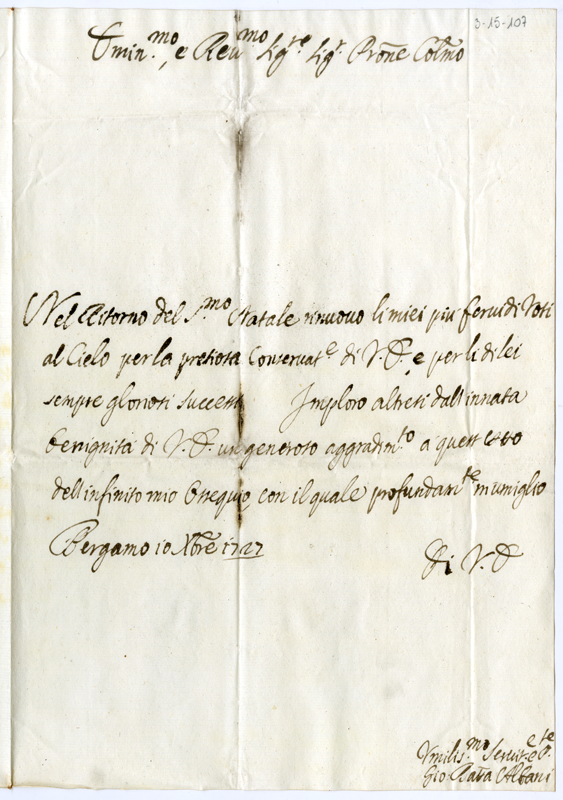 3-15-107
Emin.mo, e Reu.mo Sig.re Sig.r Prone Colmo
Nel Ritorno del S.mo Natale rinuovo li miei piu feruidi Voti
al Cielo per la pretiosa Conseruat.e di V.E. e per li di lei
sempre gloriosi successi Imploro altresi dall innata
benignità di V.E. un generoso aggradim.to a quest atto
dell infinito mio Ossequio, con il quale profundam.te m umiglio
Bergamo 10 Xbre 1727
Di V.E
Vmilis.mo Seruit.e
Gio Albani